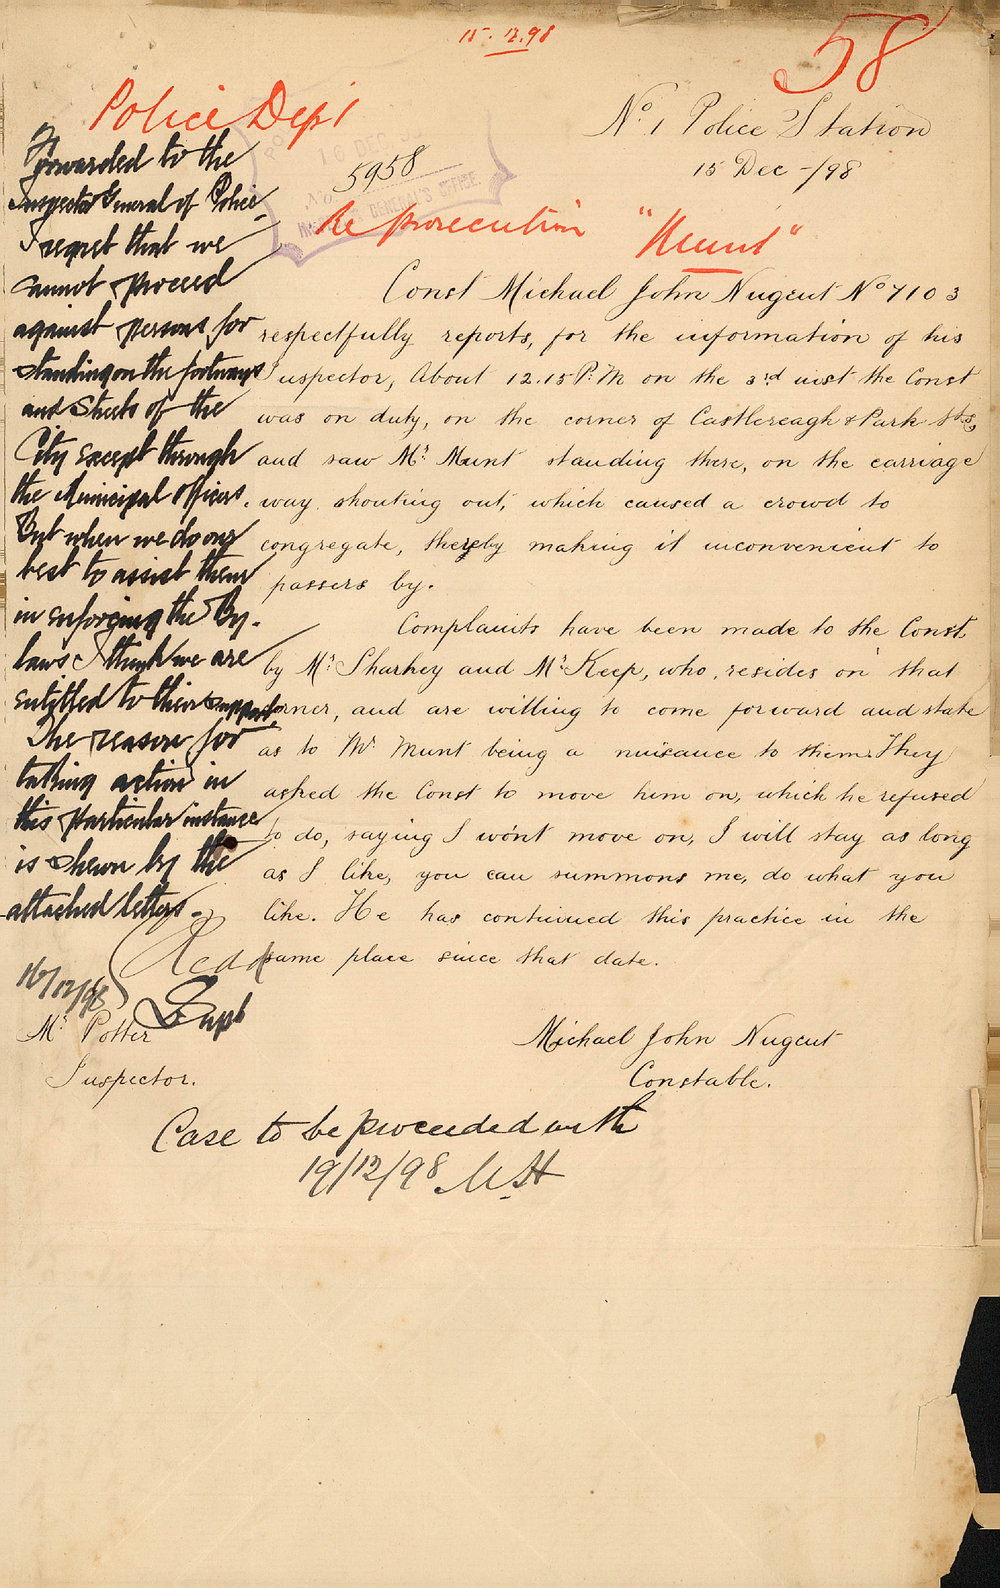 15.12.98
58
Police Dept
No. 1 Police Station
15 Dec -/98
16 DEC
5958
INSPECTOR GENERAL'S OFFICE
Re prosecution "Munt"
Const Michael John Nugent No 7103
respectfully reports, for the information of his
Inspector, About 12.15 P.M on the 3rd inst the Const
was on duty, on the corner of Castlereagh & Park Sts,
and saw Mr. Munt standing there, on the carriage
way shouting out, which caused a crowd to
congregate, thereby making it inconvenient to
passers by.
Complaints have been made to the Const
by Mr. Sharkey and Mr. Keep, who, resides on that
corner, and are willing to come forward and state
as to Mr. Munt being a nuisance to them. They
asked the Const to move him on, which he refused
to do, saying I won't move on, I will stay as long
as I like, you can summons me, do what you
like. He has continued this practice in the
same place since that date.
Michael John Nugent
Constable.
Mr. Potter
Inspector.
Forwarded to the
Inspector General of Police.
I regret that we
cannot proceed
against persons for
standing on the footways
and Streets of the
City except through
the Municipal Officers.
But when we do our
best to assist them
in enforcing the By-
laws I think we are
entitled to their support.
The reason for
taking action in
this particular instance
is shewn by the
attached letters.
Supt
16/12/98
Case to be proceeded with
19/12/98